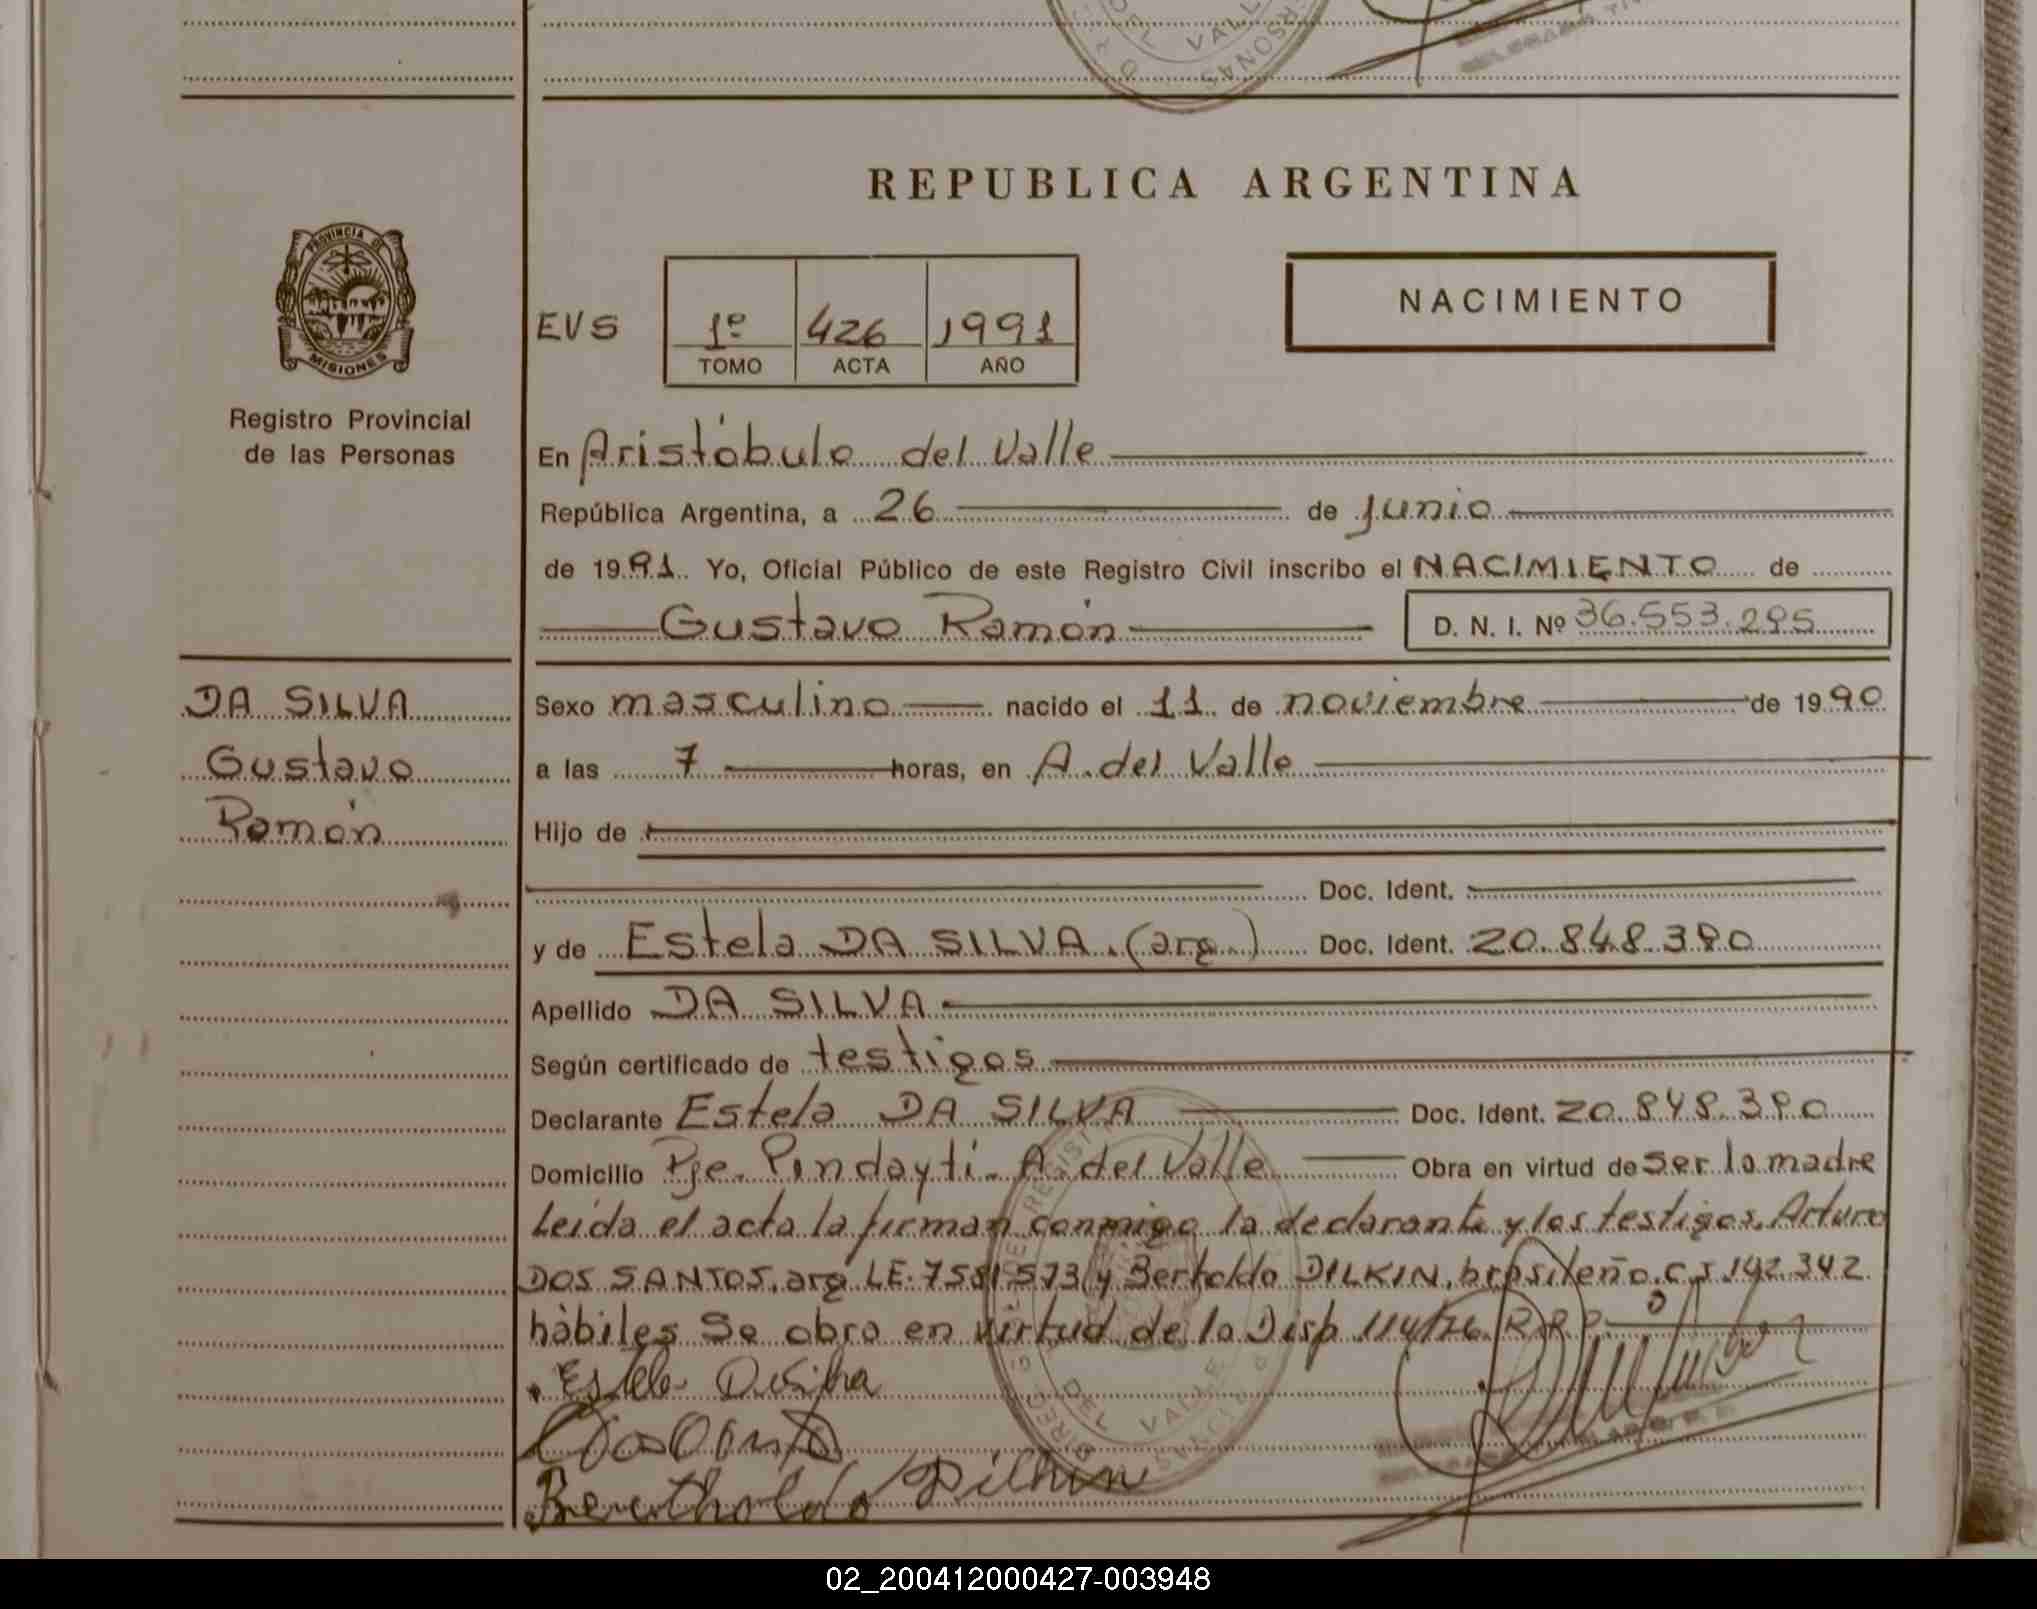 REPUBLICA ARGENTINA
PROVINCIA DE MISIONES
Registro Provincial
de las Personas
EVS
1º 426 1991
TOMO ACTA AÑO
NACIMIENTO
En Aristóbulo del Valle
República Argentina, a 26 de Junio
de 1991. Yo, Oficial Público de este Registro Civil inscribo el NACIMIENTO de
Gustavo Ramón D. N. I. Nº 36.553.295
DA SILVA
Gustavo
Ramón
Sexo masculino nacido el 11 de noviembre de 1990
a las 7 horas, en A. del Valle
Hijo de
Doc. Ident.
y de Estela DA SILVA. (arg.) Doc. Ident. 20.848.390
Apellido DA SILVA
Según certificado de testigos
Declarante Estela DA SILVA Doc. Ident. 20.848.390
Domicilio Pje. Pindaytí - A. del Valle Obra en virtud de ser la madre
Leída el acta la firman conmigo la declarante y los testigos, Arturo
DOS SANTOS, arg. LE. 7581573 y Bertoldo DILKIN, brasileño. C.I. 192.342
hábiles Se obra en virtud de la Disp 114/76. R.R.P.
Estela
Bertholdo Dilkin
DEL VALLE
02_200412000427-003948